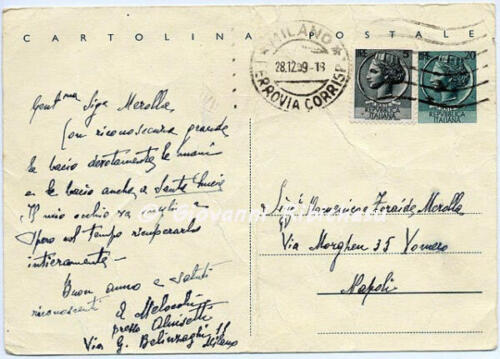 CARTOLINA POSTALE
MILANO
28.12.59-18
FERROVIA CORRISP
5
20
REPUBBLICA
ITALIANA
REPUBBLICA
ITALIANA
Gent.ma Sig.ra Merolla
Con riconoscenza grande
le bacio devotamente le mani
e le bacio anche a Santa Lucia
Il mio occhio va
Spero col tempo ricuperarlo
interamente -
Buon anno e saluti
riconoscenti
E. Melocchi
presso
Via G. Belinzaghi 11
Milano
Zoraide Merolla
Via Morghen 35 Vomero
Napoli
© Giovanni